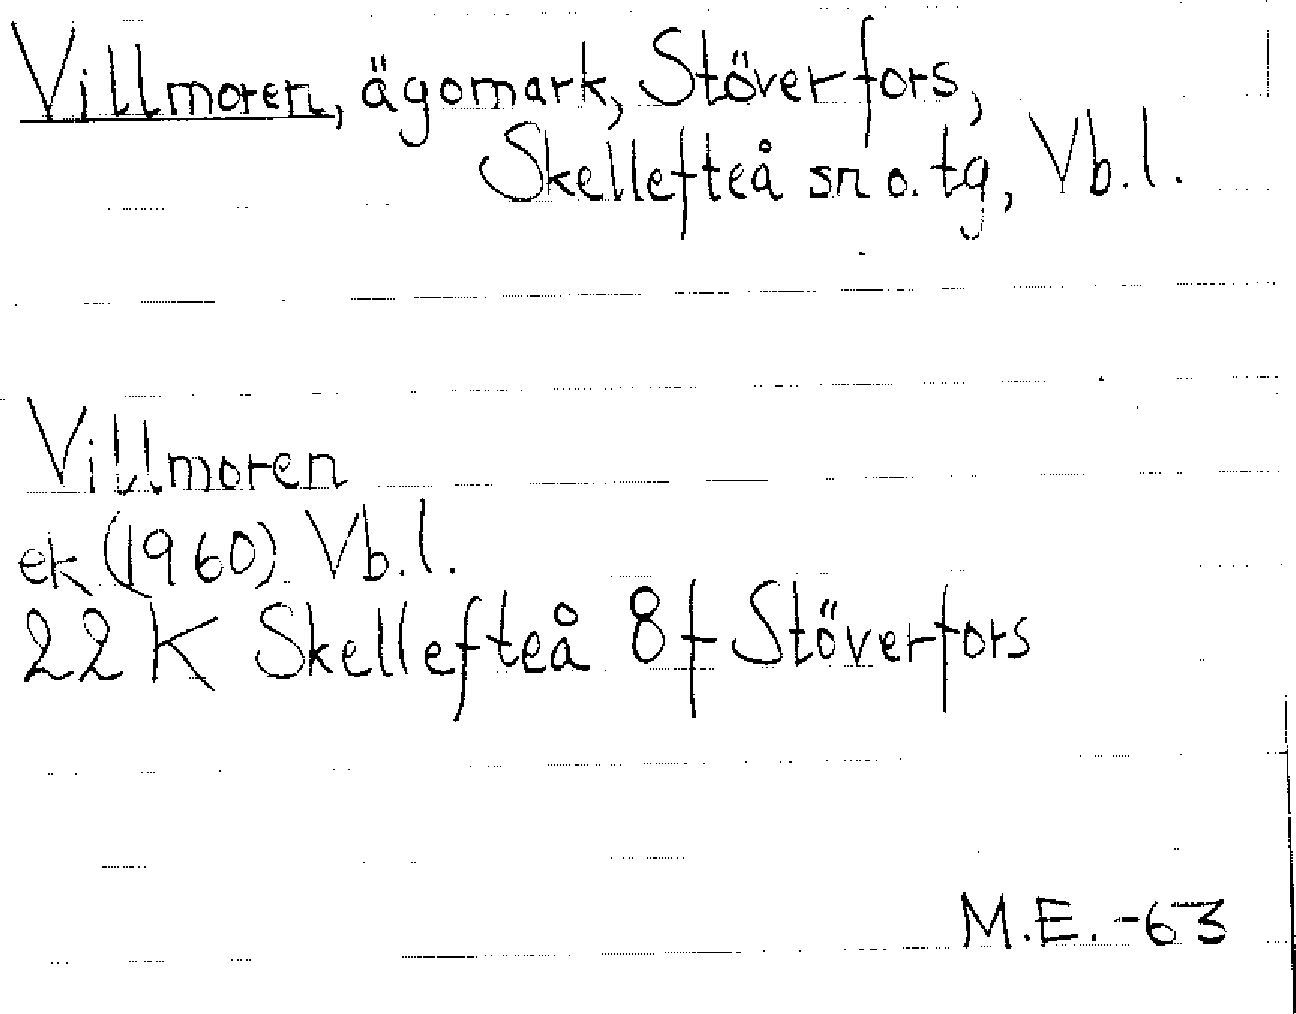 Villmoren, ägomark, Stöverfors,
Skellefteå sn o. tg, Vb. l.
Villmoren
ek (1960) Vb. l.
22 K Skellefteå 8 f Stöverfors
M.E. -63